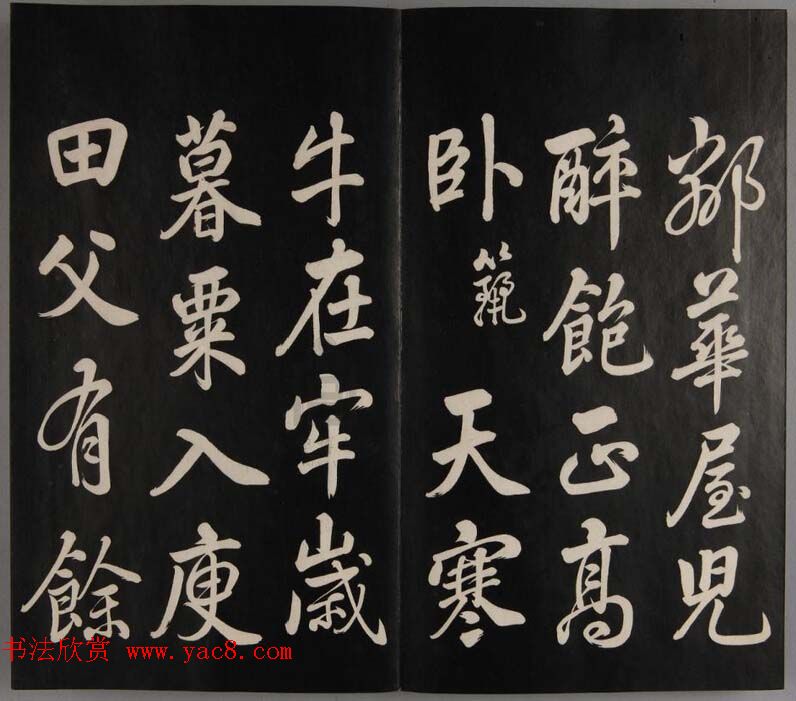 鄰華屋兒
醉飽正高
卧 獵 天寒
牛在牢歲
暮粟入庾
田父有餘
书法欣赏 www.yac8.com